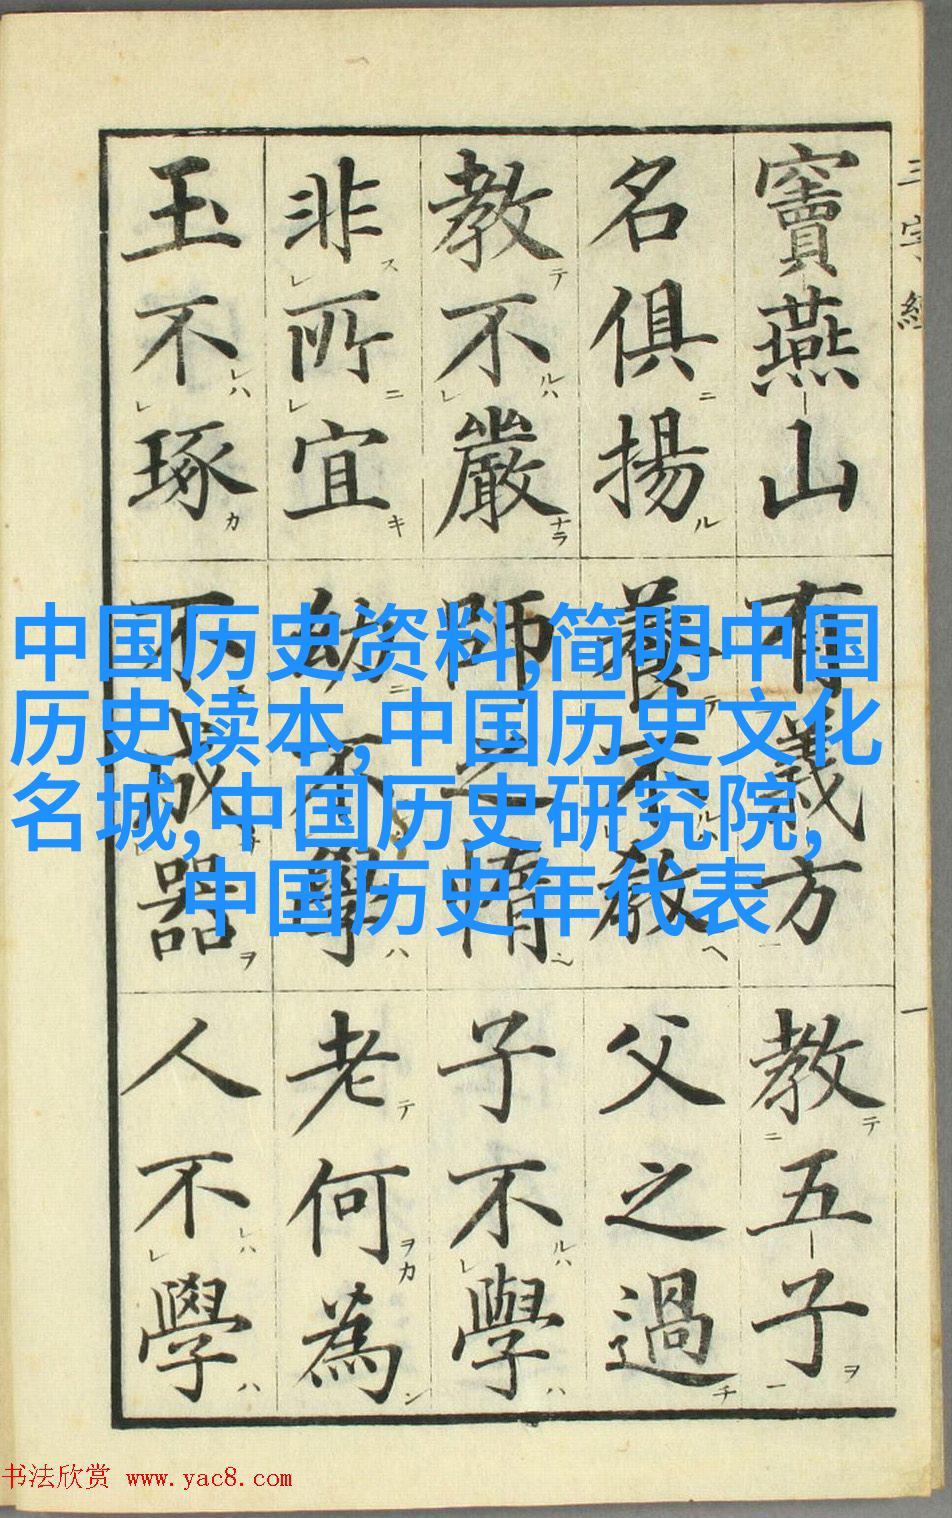 三字經
竇燕山有義方教五子
名俱揚養不教父之過
教不嚴師之惰子不學
非所宜幼不學老何為
玉不琢不成器人不學
一
中国历史资料,简明中国
历史读本,中国历史文化
名城,中国历史研究院,
中国历史年代表
书法欣赏 www.yac8.com